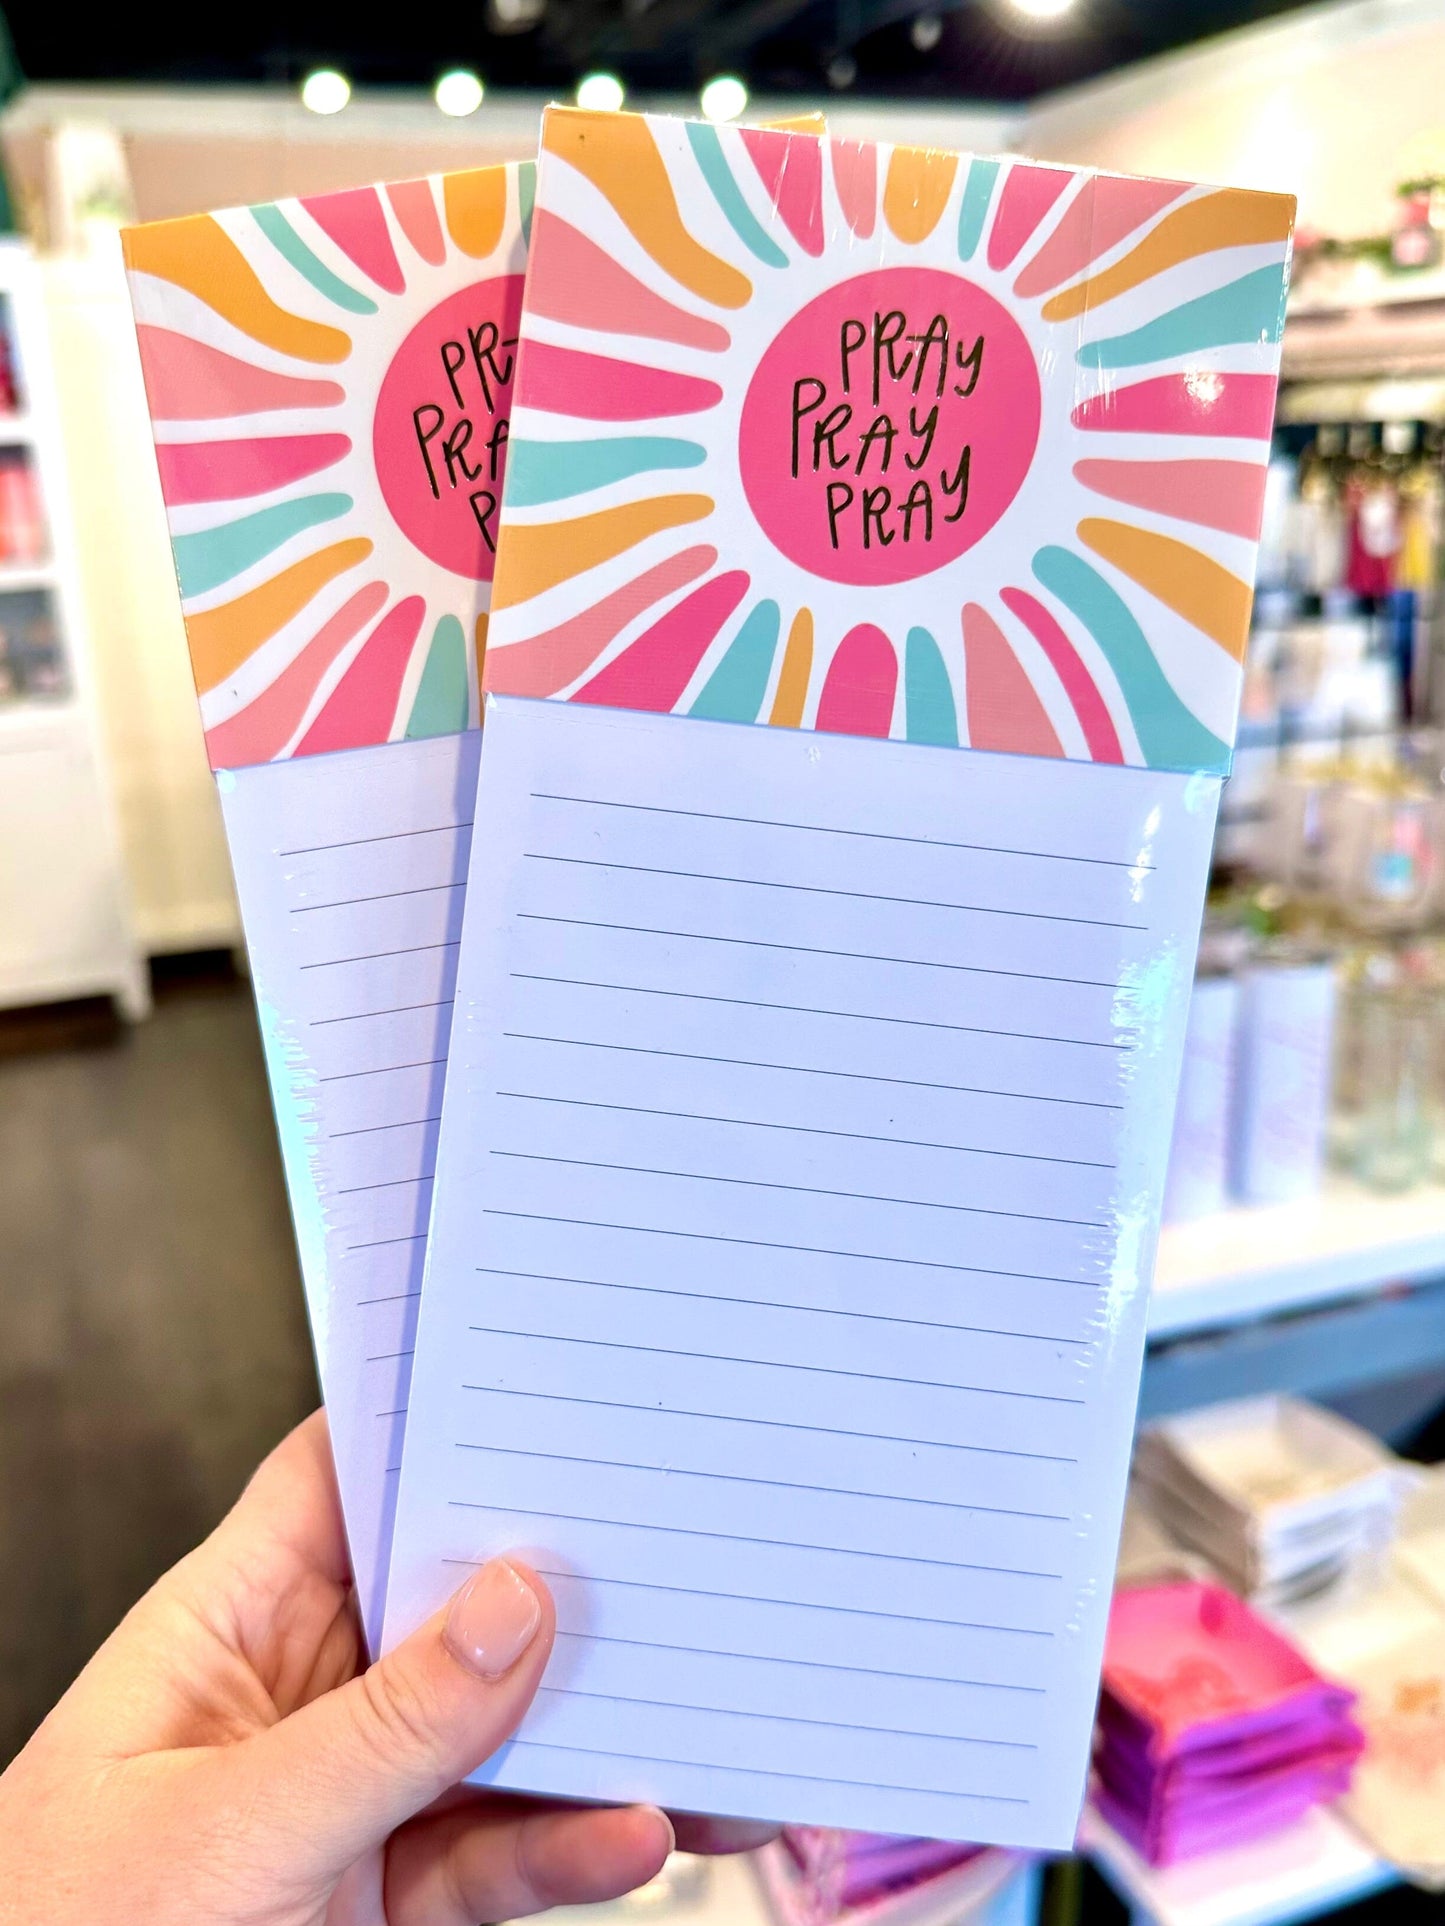 PRAY
PRAY
PRAY
PR
PRA
P